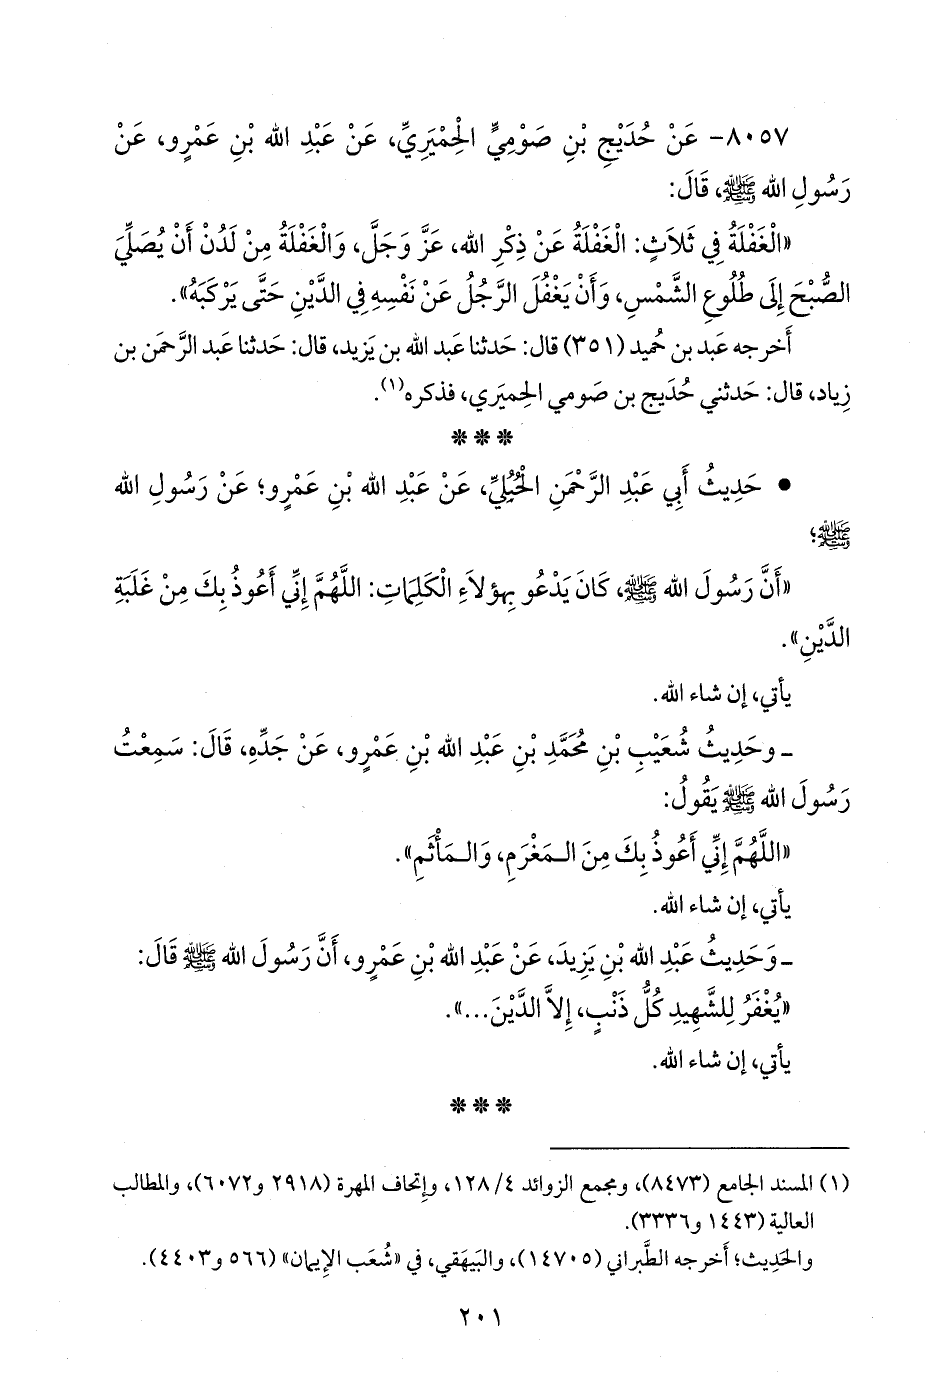 ٨٠٥٧- عَنْ حُدَيْجِ بْنِ صَوْمِيٍّ الْحِمْيَرِيِّ، عَنْ عَبْدِ الله بْنِ عَمْرٍو، عَنْ
رَسُولِ الله ﷺ، قَالَ:
«الْغَفْلَةُ فِي ثَلَاثٍ: الْغَفْلَةُ عَنْ ذِكْرِ الله، عَزَّ وَجَلَّ، وَالْغَفْلَةُ مِنْ لَدُنْ أَنْ يُصَلِّيَ
الصُّبْحَ إِلَى طُلُوعِ الشَّمْسِ، وَأَنْ يَغْفُلَ الرَّجُلُ عَنْ نَفْسِهِ فِي الدَّيْنِ حَتَّى يَرْكَبَهُ».
أَخرجه عَبد بن حُميد (٣٥١) قال: حَدثنا عَبد الله بن يَزيد، قال: حَدثنا عَبد الرَّحمَن بن
زِياد، قال: حَدثني حُدَيج بن صَومي الحِميَري، فذكره(١).
***
• حَدِيثُ أَبِي عَبْدِ الرَّحْمَنِ الْحُبُلِيِّ، عَنْ عَبْدِ الله بْنِ عَمْرٍو؛ عَنْ رَسُولِ الله
ﷺ؛
«أَنَّ رَسُولَ الله ﷺ، كَانَ يَدْعُو بِهؤلَاءِ الْكَلِمَاتِ: اللَّهُمَّ إِنِّي أَعُوذُ بِكَ مِنْ غَلَبَةِ
الدَّيْنِ».
يأتي، إن شاء الله.
ـ وحَدِيثُ شُعَيْبِ بْنِ مُحَمَّدِ بْنِ عَبْدِ الله بْنِ عَمْرٍو، عَنْ جَدِّهِ، قَالَ: سَمِعْتُ
رَسُولَ الله ﷺ يَقُولُ:
«اللَّهُمَّ إِنِّي أَعُوذُ بِكَ مِنَ الْـمَغْرَمِ، وَالْـمَأْثَمِ».
يأتي، إن شاء الله.
ـ وَحَدِيثُ عَبْدِ الله بْنِ يَزِيدَ، عَنْ عَبْدِ الله بْنِ عَمْرٍو، أَنَّ رَسُولَ الله ﷺ قَالَ:
«يُغْفَرُ لِلشَّهِيدِ كُلُّ ذَنْبٍ، إِلاَّ الدَّيْنَ...».
يأتي، إن شاء الله.
***
(١) المسند الجامع (٨٤٧٣)، ومجمع الزوائد ٤/ ١٢٨، وإتحاف المهرة (٢٩١٨ و٦٠٧٢)، والمطالب
العالية (١٤٤٣ و٣٣٣٦).
والحَدِيث؛ أَخرجه الطَّبراني (١٤٧٠٥)، والبَيهَقي، في «شُعَب الإِيمان» (٥٦٦ و٤٤٠٣).
٢٠١